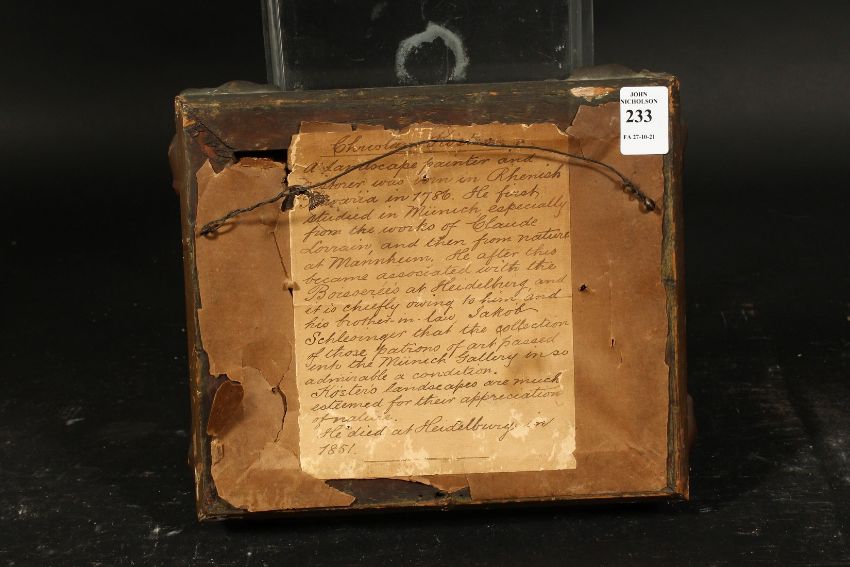 JOHN
NICHOLSON
233
FA 27-10-21
Christian
A landscape painter and
was born in Rhenish
Bavaria in 1786. He first
studied in Münich especially
from the works of Claude
Lorrain, and then from nature
at Mannheim. He after this
became associated with the
Boisserées at Heidelberg, and
it is chiefly owing to him, and
his brother-in-law, Jakob
Schlesinger that the collection
of those patrons of art passed
into the Münich Gallery in so
admirable a condition.
Kösters landscapes are much
esteemed for their appreciation
of nature.
He died at Heidelburg in
1851.